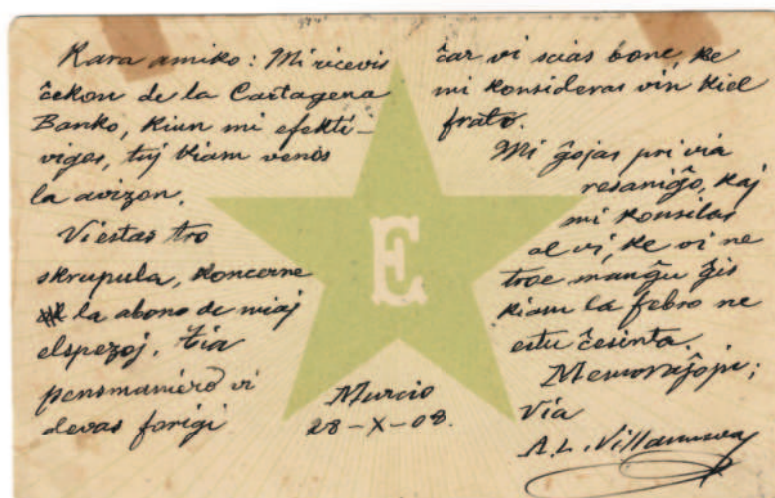 Kara amiko: Mi ricevis
ĉekon de la Cartagena
Banko, kiun mi efekti-
vigos, tuj kiam venos
la avizon.
Vi estas tro
skrupula, koncerne
la abono de miaj
elspezoj. tia
pensmaniero vi
devas forigi
ĉar vi scias bone, ke
mi konsideras vin kiel
frato.
Mi ĝojas pri via
resaniĝo, kaj
mi konsilas
al vi, ke vi ne
troe manĝu ĝis
kiam la febro ne
estu ĉesinta.
Memoraĵojn;
Via
A. L. Villanueva
Murcio
28-X-08.
E